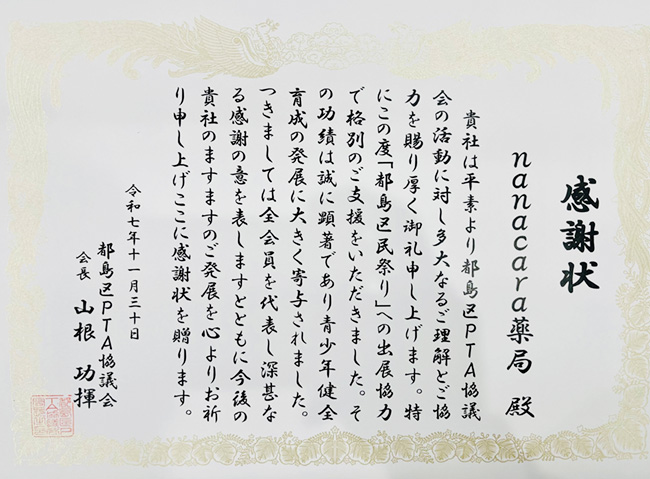 感謝状
nanacara薬局 殿
貴社は平素より都島区PTA協議
会の活動に対し多大なるご理解とご協
力を賜り厚く御礼申し上げます。特
にこの度「都島区民祭り」への出展協力
で格別のご支援をいただきました。そ
の功績は誠に顕著であり青少年健全
育成の発展に大きく寄与されました。
つきましては全会員を代表し深甚な
る感謝の意を表しますとともに今後の
貴社のますますのご発展を心よりお祈
り申し上げここに感謝状を贈ります。
令和七年十一月三十日
都島区PTA協議会
会長 山根 功揮